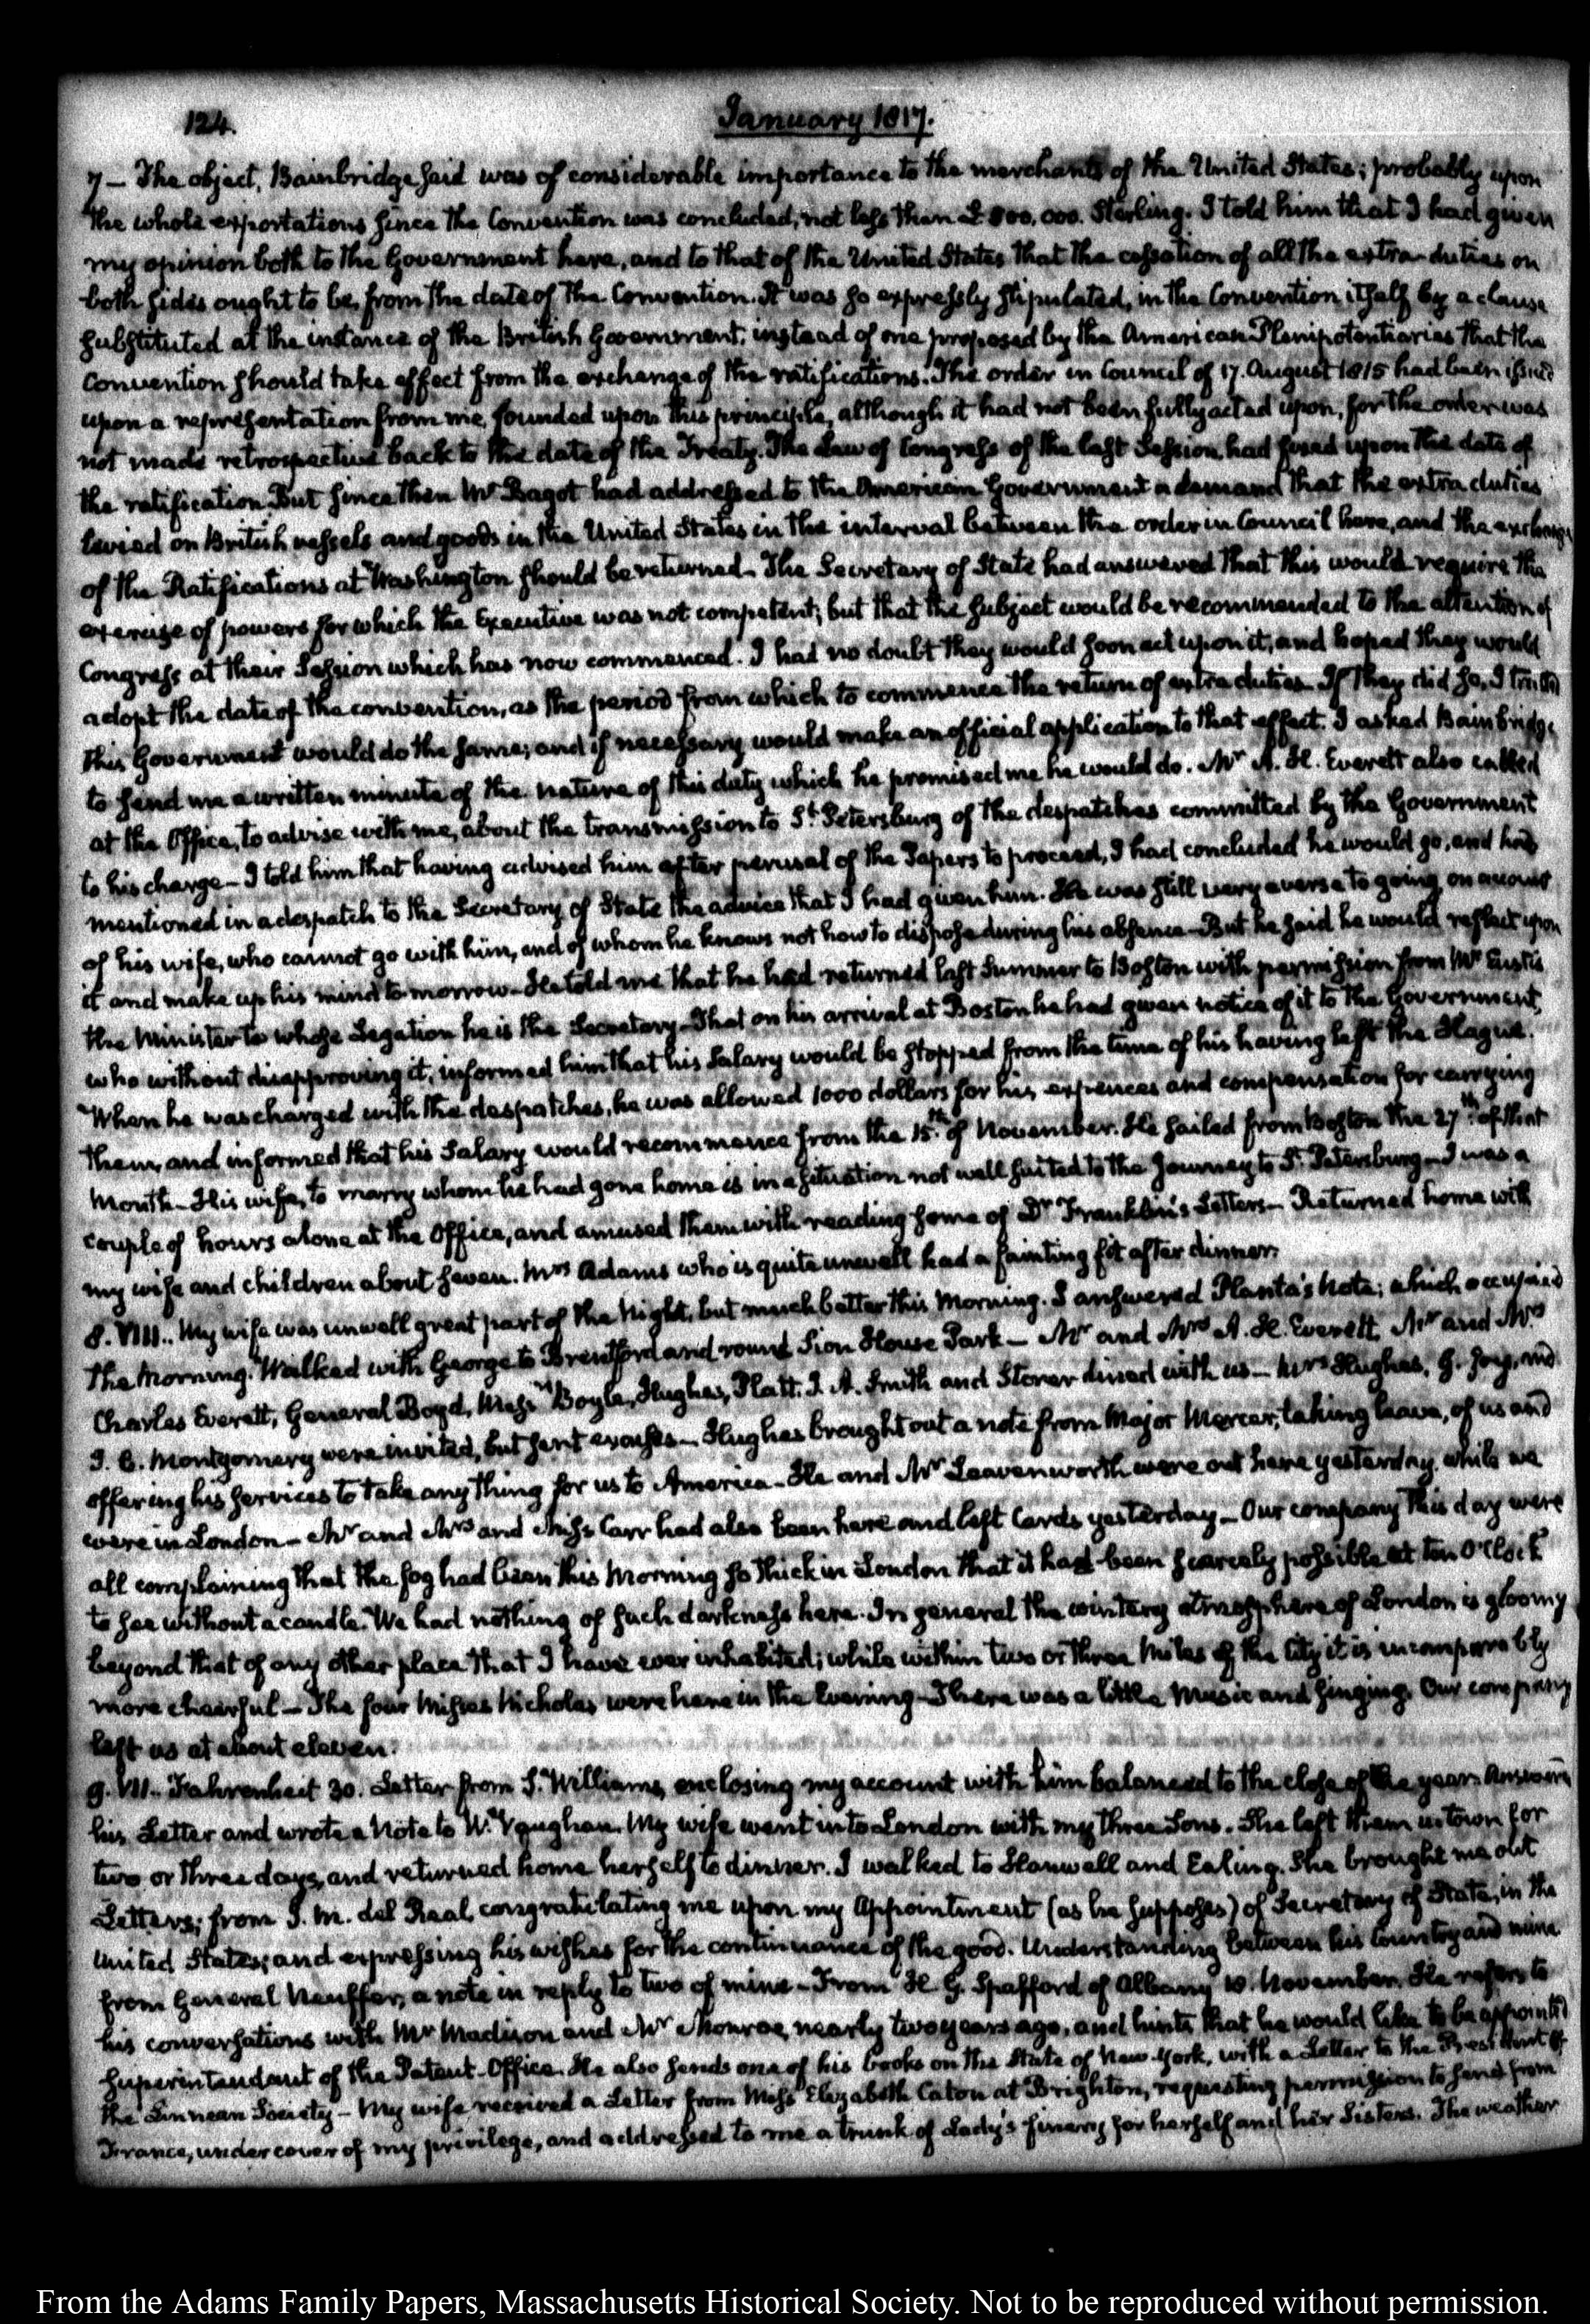 124.
January 1817.
7 — The object, Bainbridge said was of considerable importance to the merchants of the United States; probably upon
the whole exportations since the Convention was concluded, not less than £ 800,000. Sterling. I told him that I had given
my opinion both to the Government here, and to that of the United States that the cessation of all the extra-duties on
both sides ought to be, from the date of the Convention. It was so expressly stipulated, in the Convention itself by a clause
substituted at the instance of the British Government; instead of one proposed by the American Plenipotentiaries that the
Convention should take effect from the exchange of the ratifications. The order in Council of 17. August 1815 had been issued
upon a representation from me, founded upon this principle, although it had not been fully acted upon, for the order was
not made retrospective back to the date of the Treaty. The Law of Congress of the last Session had fixed upon the date of
the ratification. But since then Mr Bagot had addressed to the American Government a demand that the extra duties
levied on British vessels and goods in the United States in the interval between the order in Council here, and the exchange
of the Ratifications at Washington should be returned — The Secretary of State had answered that this would require the
exercise of powers for which the Executive was not competent; but that the subject would be recommended to the attention of
Congress at their Session which has now commenced. I had no doubt they would soon act upon it, and hoped they would
adopt the date of the convention, as the period from which to commence the return of extra duties. If they did so, I trusted
this Government would do the same; and if necessary would make an official application to that effect. I asked Bainbridge
to send me a written minute of the nature of this duty which he promised me he would do. Mr A. H. Everett also called
at the Office, to advise with me, about the transmission to St Petersburg of the despatches committed by the Government
to his charge — I told him that having advised him after perusal of the Papers to proceed, I had concluded he would go, and had
mentioned in a despatch to the Secretary of State the advice that I had given him. He was still very averse to going, on account
of his wife, who cannot go with him, and of whom he knows not how to dispose during his absence — But he said he would reflect upon
it and make up his mind to-morrow — He told me that he had returned last Summer to Boston with permission from Mr Eustis
the Minister to whose Legation he is the Secretary — That on his arrival at Boston he had given notice of it to the Government,
who without disapproving it, informed him that his Salary would be stopped from the time of his having left the Hague.
When he was charged with the despatches, he was allowed 1000 dollars for his expences and compensation for carrying
them, and informed that his Salary would recommence from the 15th of November. He sailed from Boston the 27th of that
Month — His wife, to marry whom he had gone home is in a situation not well suited to the Journey to St Petersburg — I was a
couple of hours alone at the Office, and amused them with reading some of Dr Franklin's Letters — Returned home with
my wife and children about seven. Mrs Adams who is quite unwell had a fainting fit after dinner.
8. VIII.. My wife was unwell great part of the Night, but much better this Morning. I answered Planta's Note; which occupied
the Morning. Walked with George to Brentford and round Sion House Park — Mr and Mrs A. H. Everett, Mr and Mrs
Charles Everett, General Boyd, Messrs Boyle, Hughes, Platt, J. A. Smith and Storer dined with us — Mrs Hughes, G. Joy, and
J. C. Montgomery were invited, but sent excuses — Hughes brought out a note from Major Mercer, taking leave, of us and
offering his services to take any thing for us to America — He and Mr Leavenworth were out here yesterday, while we
were in London — Mr and Mrs and Miss Carr had also been here and left Cards yesterday — Our company this day were
all complaining that the fog had been this Morning so thick in London that it had been scarcely possible at ten O'Clock
to see without a candle. We had nothing of such darkness here. In general the wintery atmosphere of London is gloomy
beyond that of any other place that I have ever inhabited; while within two or three Miles of the City it is incomparably
more cheerful — The four Misses Nicholas were here in the Evening — There was a little Music and singing. Our company
left us at about eleven.
9. VII.. Fahrenheit 30. Letter from S. Williams, enclosing my account with him balanced to the close of the year. Answered
his Letter and wrote a Note to W. Vaughan. My wife went into London with my three Sons. She left them in town for
two or three days, and returned home herself to dinner. I walked to Hanwell and Ealing. She brought me out
Letters; from J. M. del Real, congratulating me upon my Appointment (as he supposes) of Secretary of State, in the
United States; and expressing his wishes for the continuance of the good. Understanding between his Country and mine
from General Neuffer, a note in reply to two of mine — From H. G. Spafford of Albany 10. November. He refers to
his conversations with Mr Madison and Mr Monroe, nearly two years ago, and hints that he would like to be appointed
Superintendant of the Patent-Office. He also sends one of his books on the State of New-York, with a Letter to the President of
the Linnean Society — My wife received a Letter from Miss Elizabeth Caton at Brighton, requesting permission to send from
France, under cover of my privilege, and addressed to me a trunk of Lady's finery for herself and her Sisters. The weather
From the Adams Family Papers, Massachusetts Historical Society. Not to be reproduced without permission.